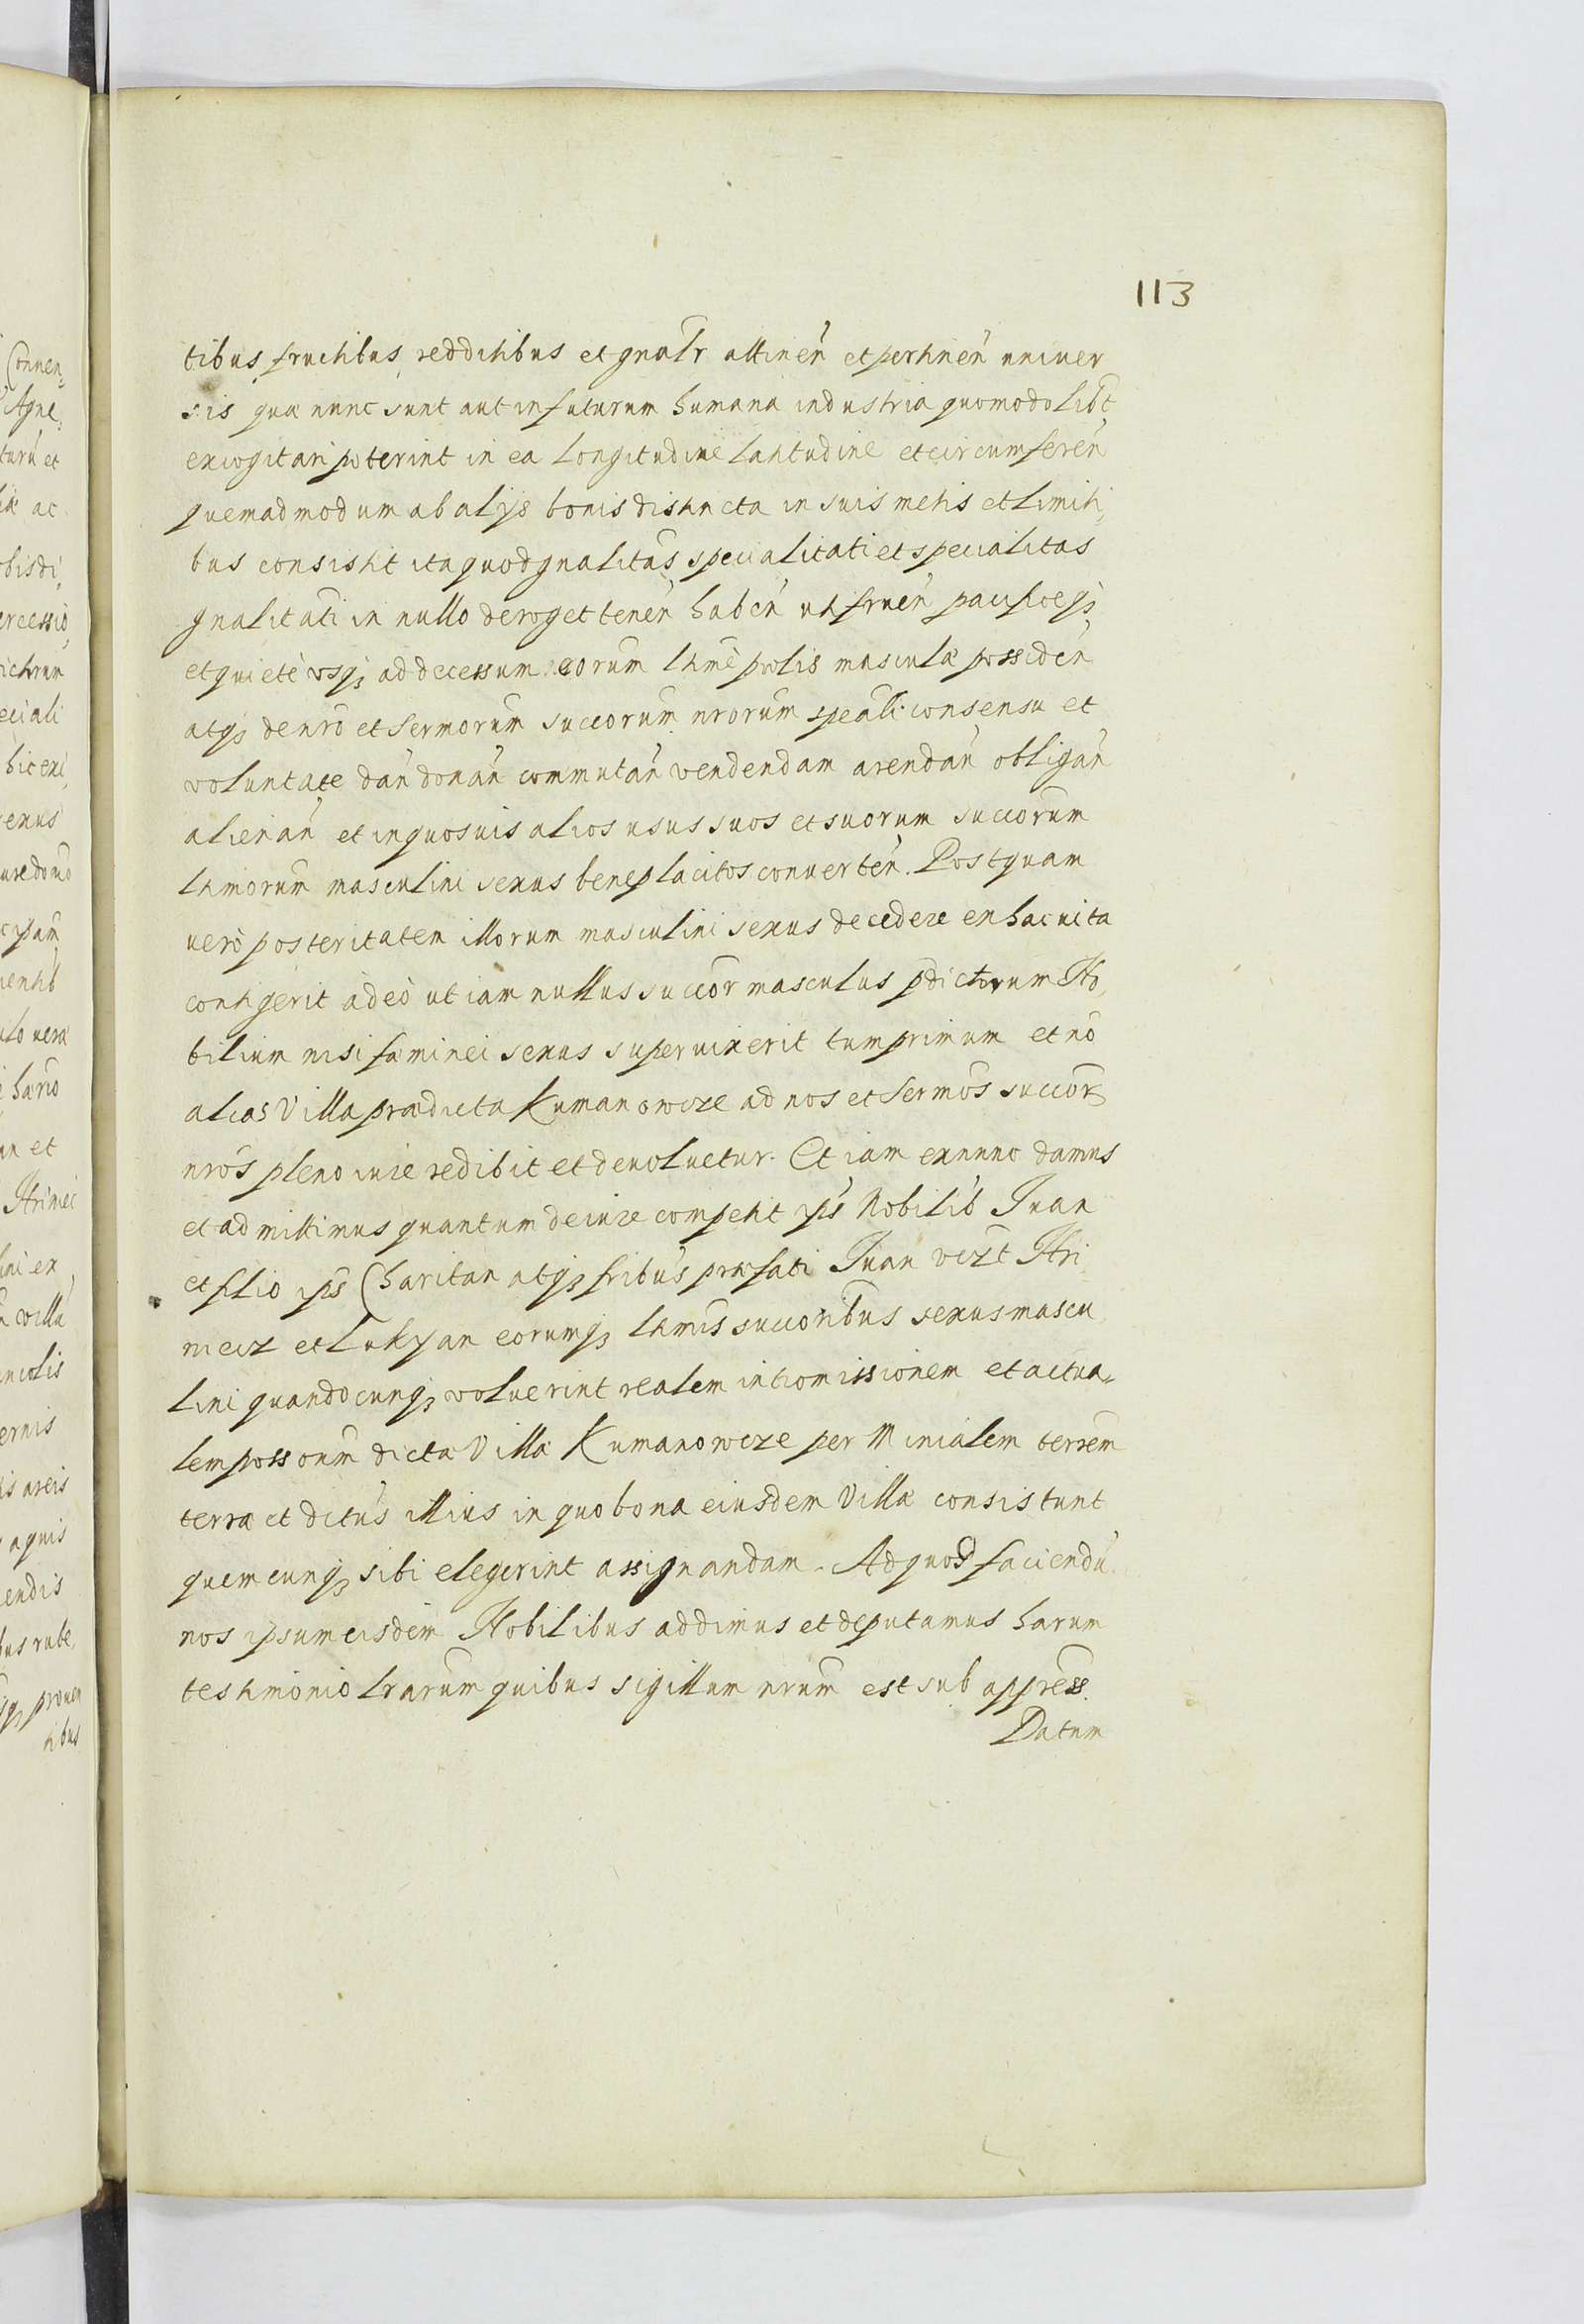 113
tibus fructibus redditibus et gnalr attinen̄ et pertinen̄ uniuer
sis quæ nunc sunt aut in futurum humana industria quomodolibt
excogitari poterint in ea longitudine latitudine et circumferen̄
quemadmodum ab alijs bonis distincta in suis metis et limiti,
bus consistit ita quod gnalitas specialitati et specialitas
gnalitati in nullo deroget tenen̄ haben̄ utifruen̄ pacificeq;
et quietè vsq; ad decessum eorum ltimè prolis masculæ possiden̄
atq; de nr̄o et Sermorum succorum nrorum speāli consensu et
voluntate dan̄ donan̄ commutan̄ vendendam arendan̄ obligan̄
alienan̄ et in quosuis alios usus suos et suorum succorum
ltimorum masculini sexus beneplacitos conuerten̄. Postquam
uerò posteritatem illorum masculini sexus decedere ex hac uita
contigerit àdeò ut iam nullus succor masculus pdictorum No,
bilium nisi fæminei sexus superuixerit tum primum et nō
alias Villa prædicta Kumanowcze ad nos et Sermos succor
nros pleno iure redibit et deuoluetur. Et iam exnunc damus
et admittimus quantum de iure competit ips Nobilib Iuan
et filio ips Charitan atq; fribus præfati Iuan vczt Hri
niecz et Lukyan eorumq; ltimis succoribus sexus mascu
lini quandocunq; voluerint realem intromissionem et actua=
lem possonem dictæ Villæ Kumanowcze per Minialem terrem
terræ et ditus illius in quo bona eiusdem Villæ consistunt
quemcunq; sibi elegerint assignandam. Ad quod faciendū
nos ipsum eisdem Nobilibus addimus et deputamus harum
testimonio lrarum quibus sigillum nrum est sub appress.
Datum